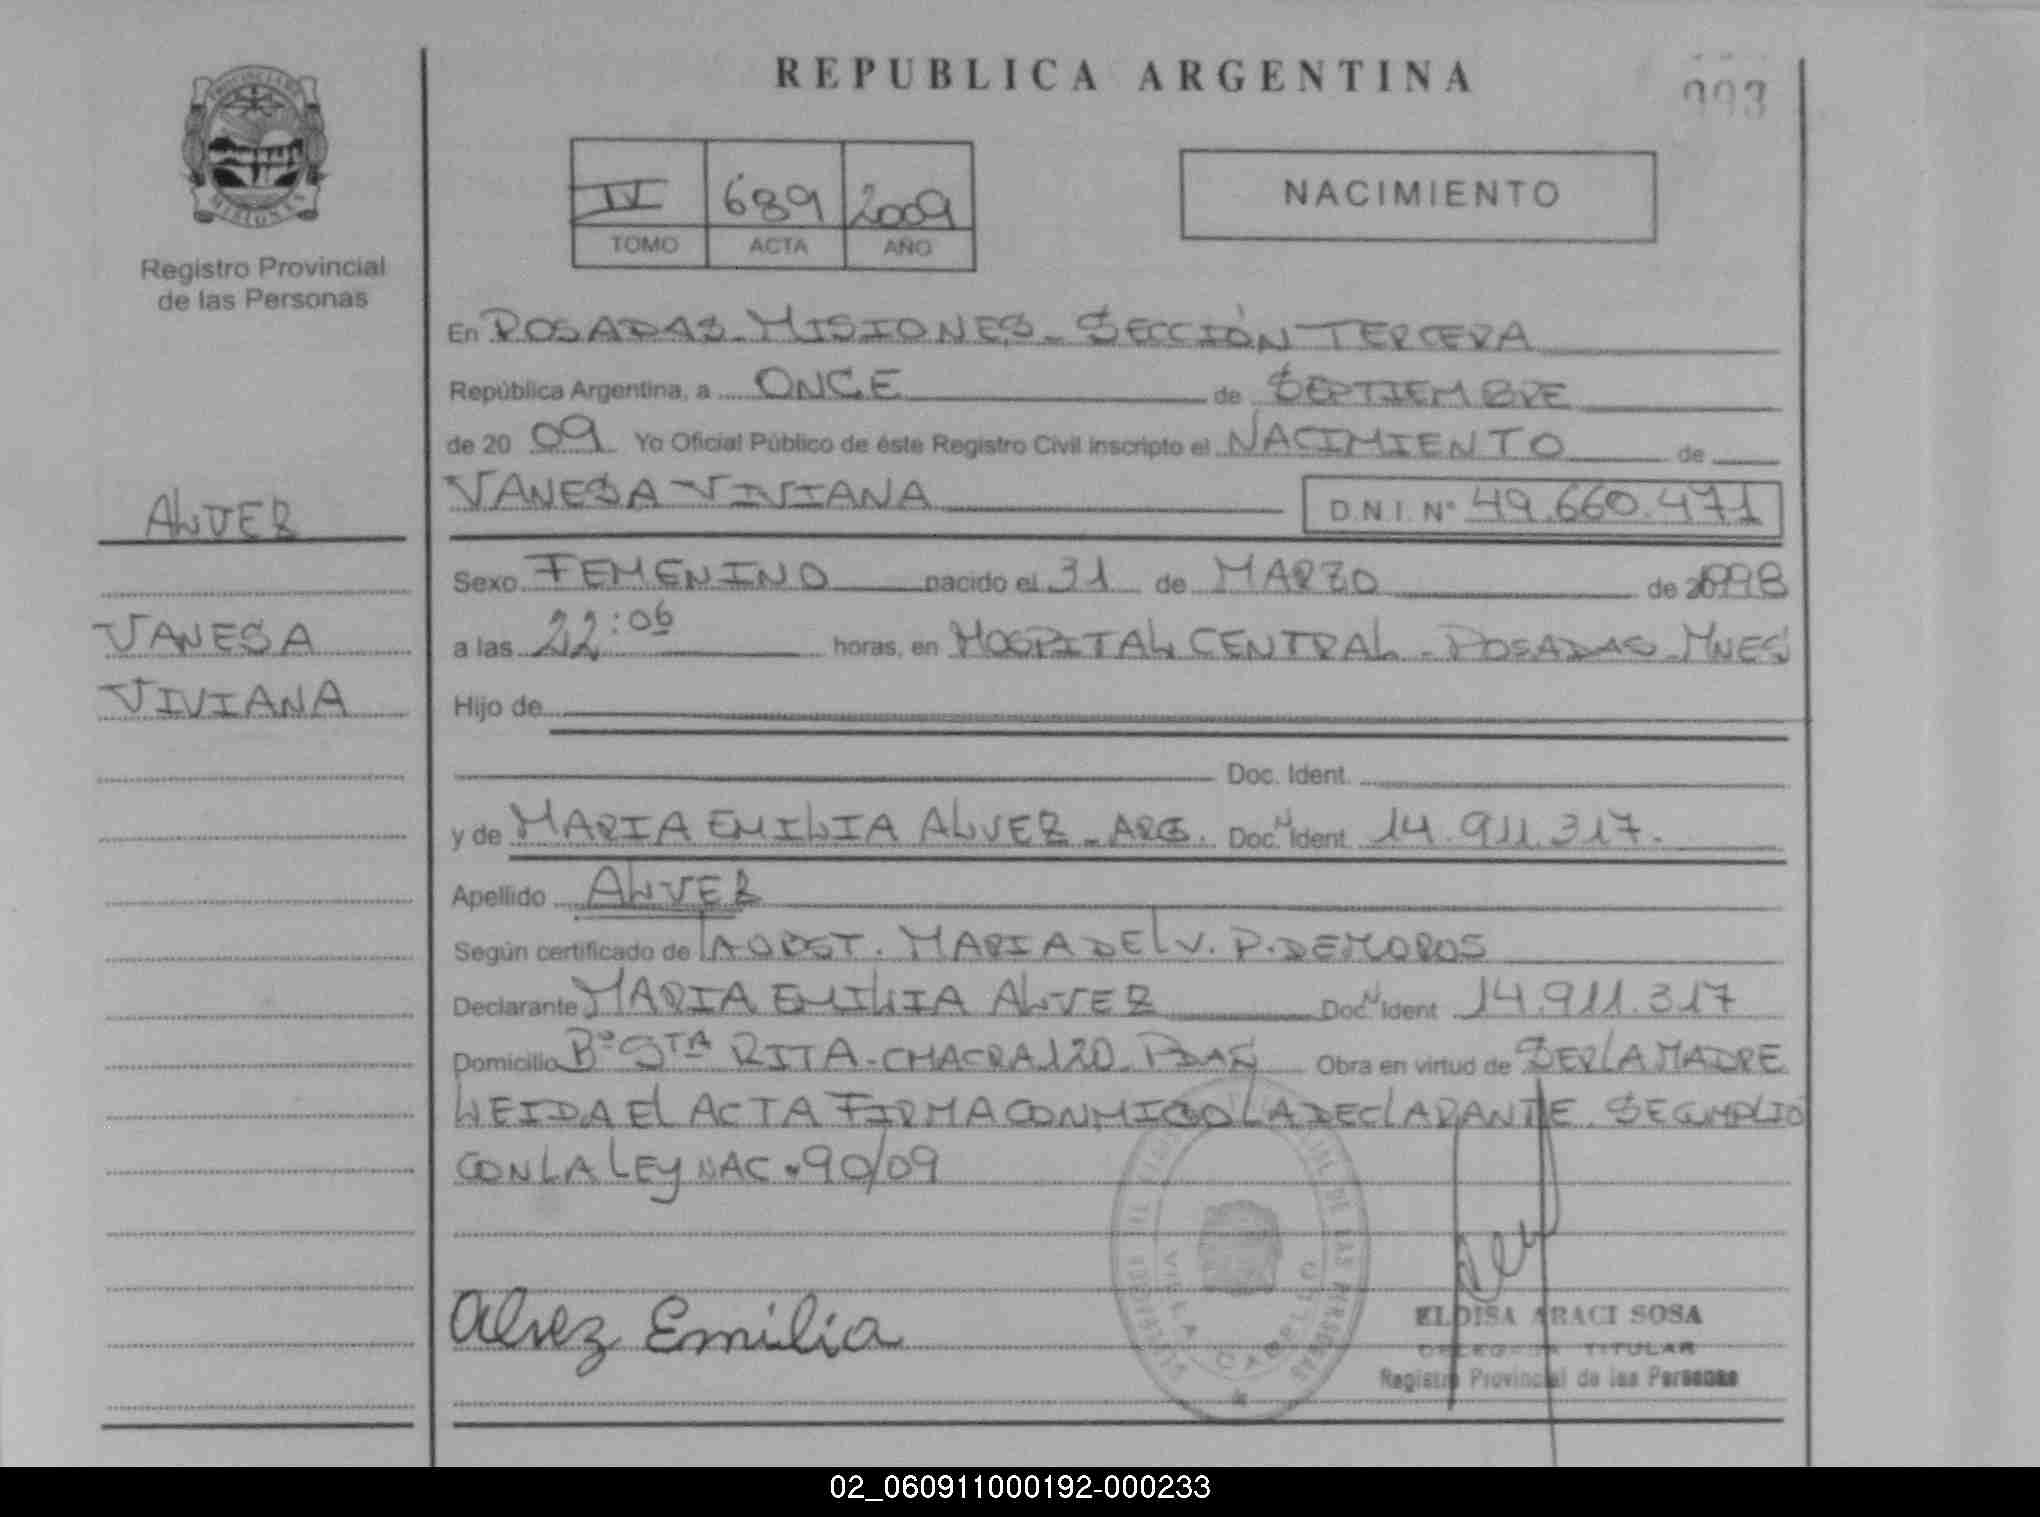 REPUBLICA ARGENTINA
993
PROVINCIA DE
MISIONES
Registro Provincial
de las Personas
IV 689 2009
TOMO ACTA AÑO
NACIMIENTO
En POSADAS-MISIONES-SECCIÓN TERCERA
República Argentina, a ONCE de SEPTIEMBRE
de 2009 Yo Oficial Público de éste Registro Civil inscripto el NACIMIENTO de
VANESA VIVIANA D.N.I. Nº 49.660.471
ALVEZ
Sexo FEMENINO nacido el 31 de MARZO de 1998
VANESA
a las 22:06 horas, en HOSPITAL CENTRAL-POSADAS-MNES
VIVIANA
Hijo de
Doc. Ident.
y de MARIA EMILIA ALVEZ-ARG. Doc. N Ident. 14.911.317.
Apellido ALVEZ
Según certificado de LA OBST. MARIA DEL V. P. DE MOROS
Declarante MARIA EMILIA ALVEZ Doc. N Ident 14.911.317
Domicilio Bº STA RITA-CHACRA 120-PDAS Obra en virtud de SER LA MADRE
LEIDA EL ACTA FIRMA CONMIGO LA DECLARANTE. SE CUMPLIO
CON LA LEY NAC. 90/09
Alvez Emilia
DE LAS PERSONAS
VILLA CABELLO
ELOISA ARACI SOSA
DELEGADA TITULAR
Registro Provincial de las Personas
02_060911000192-000233